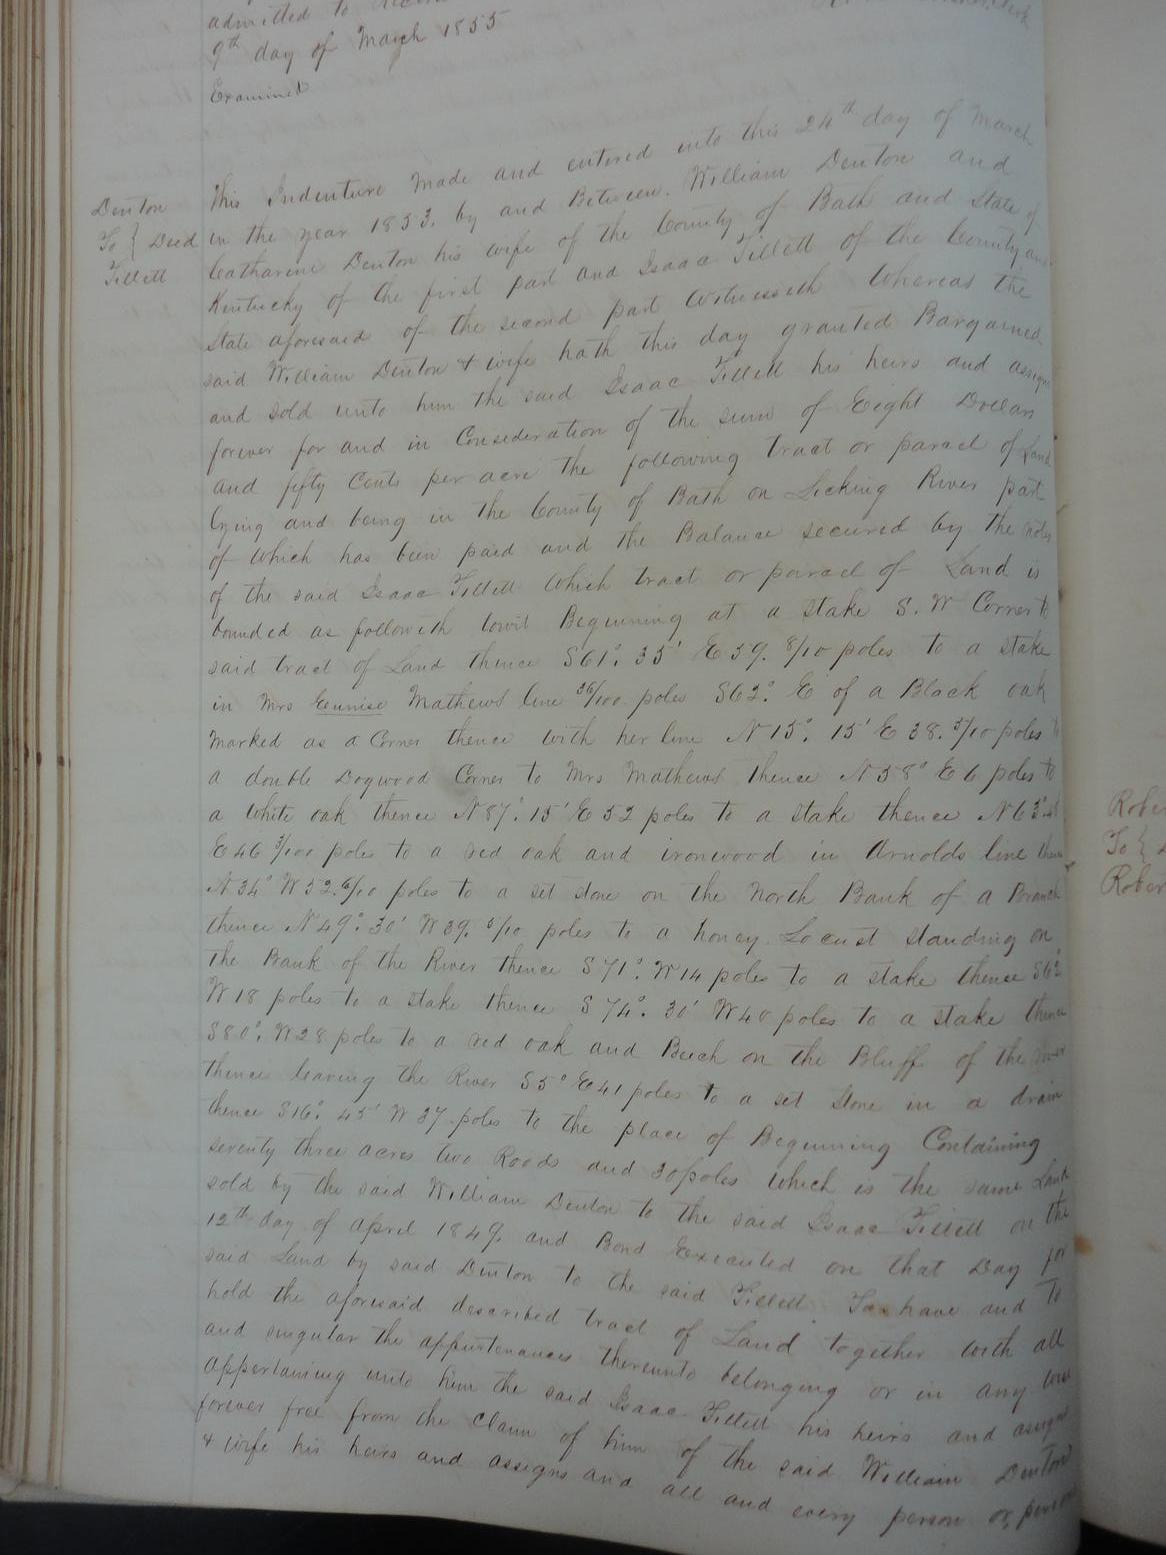 admitted to
9th day of March 1855
Examined
Denton
To } Deed
Tillett
This Indenture Made and entered into this 24th day of March
in the year 1853. by and Between. William Denton and
Catharine Denton his wife of the County of Bath and State of
Kentucky of the first part and Isaac Tillett of the County and
State aforesaid of the second part Witnesseth Whereas the
said William Denton & wife hath this day granted Bargained
and sold unto him the said Isaac Tillett his heirs and assigns
forever for and in Consideration of the sum of Eight Dollars
and fifty Cents per acre the following tract or parcel of Land
lying and being in the County of Bath on Licking River part
of which has been paid and the Balance secured by the notes
of the said Isaac Tillett Which tract or parcel of Land is
bounded as followeth towit Beginning at a stake S. W Corner to
said tract of Land thence S61°. 35' E 39. 8/10 poles to a stake
in Mrs Eunise Mathews line 36/100 poles S62° E of a Black oak
Marked as a Corner thence with her line N 15°. 15' E 38. 5/10 poles to
a double Dogwood Corner to Mrs Mathews thence N 58° E 6 poles to
a White oak thence N 87°. 15' E 52 poles to a stake thence N 63°
E 46 5/100 poles to a red oak and ironwood in Arnolds line thence
N 34° W 52. 6/10 poles to a set stone on the North Bank of a Branch
thence N 49°. 30' W 39. 5/10 poles to a honey Locust standing on
the Bank of the River thence S 71°. W 14 poles to a stake thence S 62°
W 18 poles to a stake thence S 74°. 30' W 40 poles to a stake thence
S 80°. W 28 poles to a red oak and Beech on the Bluff of the river
thence leaving the River S 5° E 41 poles to a set stone in a drain
thence S 16°. 45' W 37. poles to the place of Beginning Containing
seventy three acres two Roods and 30 poles Which is the same Land
sold by the said William Denton to the said Isaac Tillett on the
12th day of April 1849. and Bond Executed on that Day for
said Land by said Denton to the said Tillett To have and to
hold the aforesaid described tract of Land together with all
and singular the appurtenances thereunto belonging or in any wise
appertaining unto him the said Isaac Tillett his heirs and assigns
forever free from the Claim of him of the said William Denton
& wife his heirs and assigns and all and every person or
Rober
To {
Rober